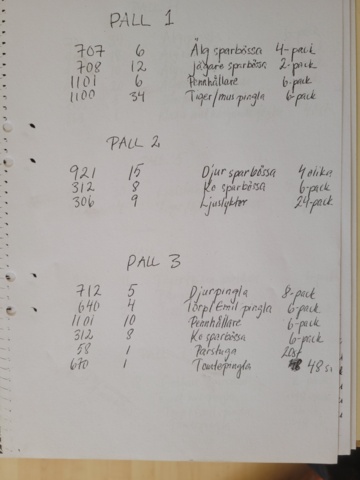 PALL 1
707 6 Älg sparbössa 4-pack
708 12 Jägare sparbössa 2-pack
1101 6 Pennhållare 6-pack
1100 34 Tiger/mus pingla 6-pack
PALL 2
921 15 Djur sparbössa 4 olika
312 8 Ko sparbössa 6-pack
306 9 Ljuslyktor 24-pack
PALL 3
712 5 Djurpingla 8-pack
640 4 Torp/Emil pingla 6-pack
1101 10 Pennhållare 6-pack
312 8 Ko sparbössa 6-pack
58 1
670 1 Tomtepingla 48